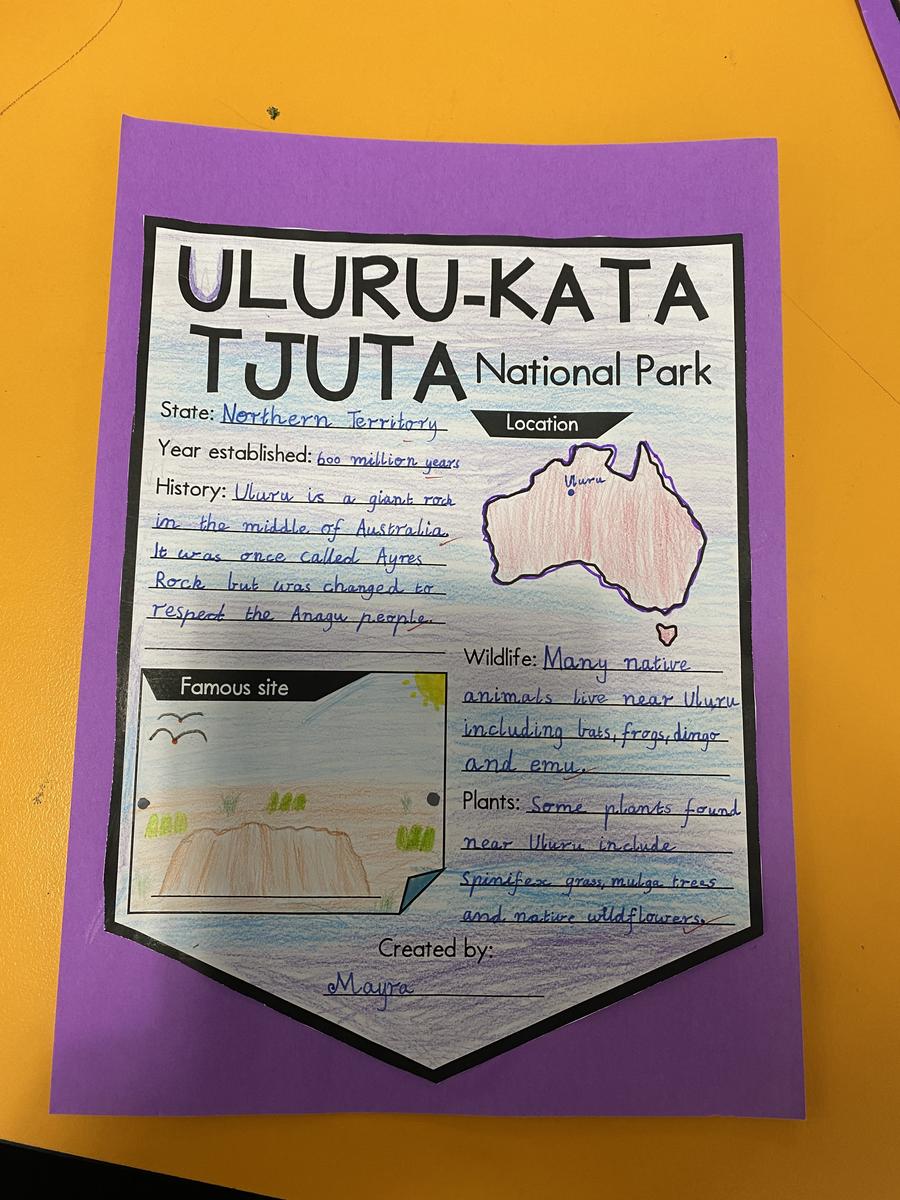 ULURU-KATA
TJUTA National Park
State: Northern Territory
Year established: 600 million years
History: Uluru is a giant rock
in the middle of Australia.
It was once called Ayres
Rock but was changed to
respect the Anagu people.
Location
Uluru
Famous site
Wildlife: Many native
animals live near Uluru
including bats, frogs, dingo
and emu.
Plants: Some plants found
near Uluru include
Spinifex grass, mulga trees
and native wildflowers.
Created by:
Mayra